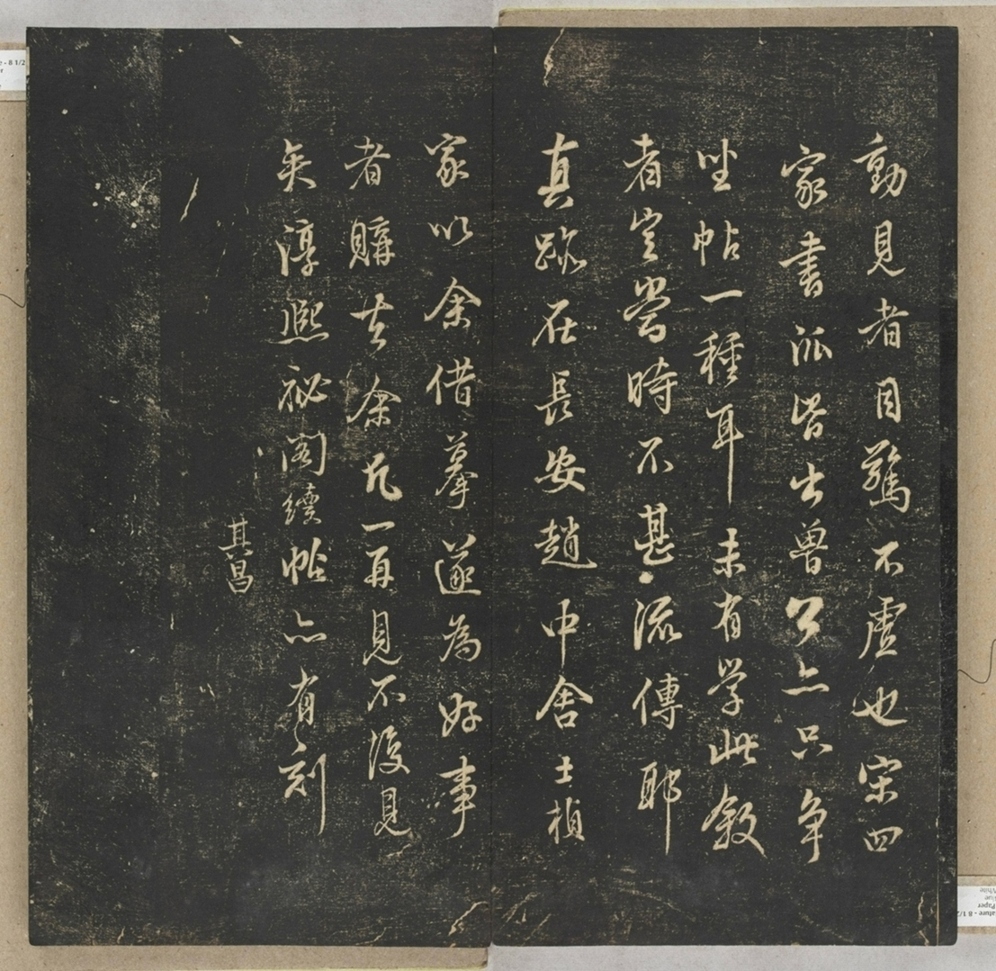 動見者目驚不虛也宋四
家書派皆出魯公亦只争
坐帖一種耳未有学此叙
者豈當時不甚流傳耶
真跡在長安趙中舍士楨
家以余借摹遂為好事
者購去余凡一再見不復見
矣淳熙祕閣續帖亦有刻
其昌